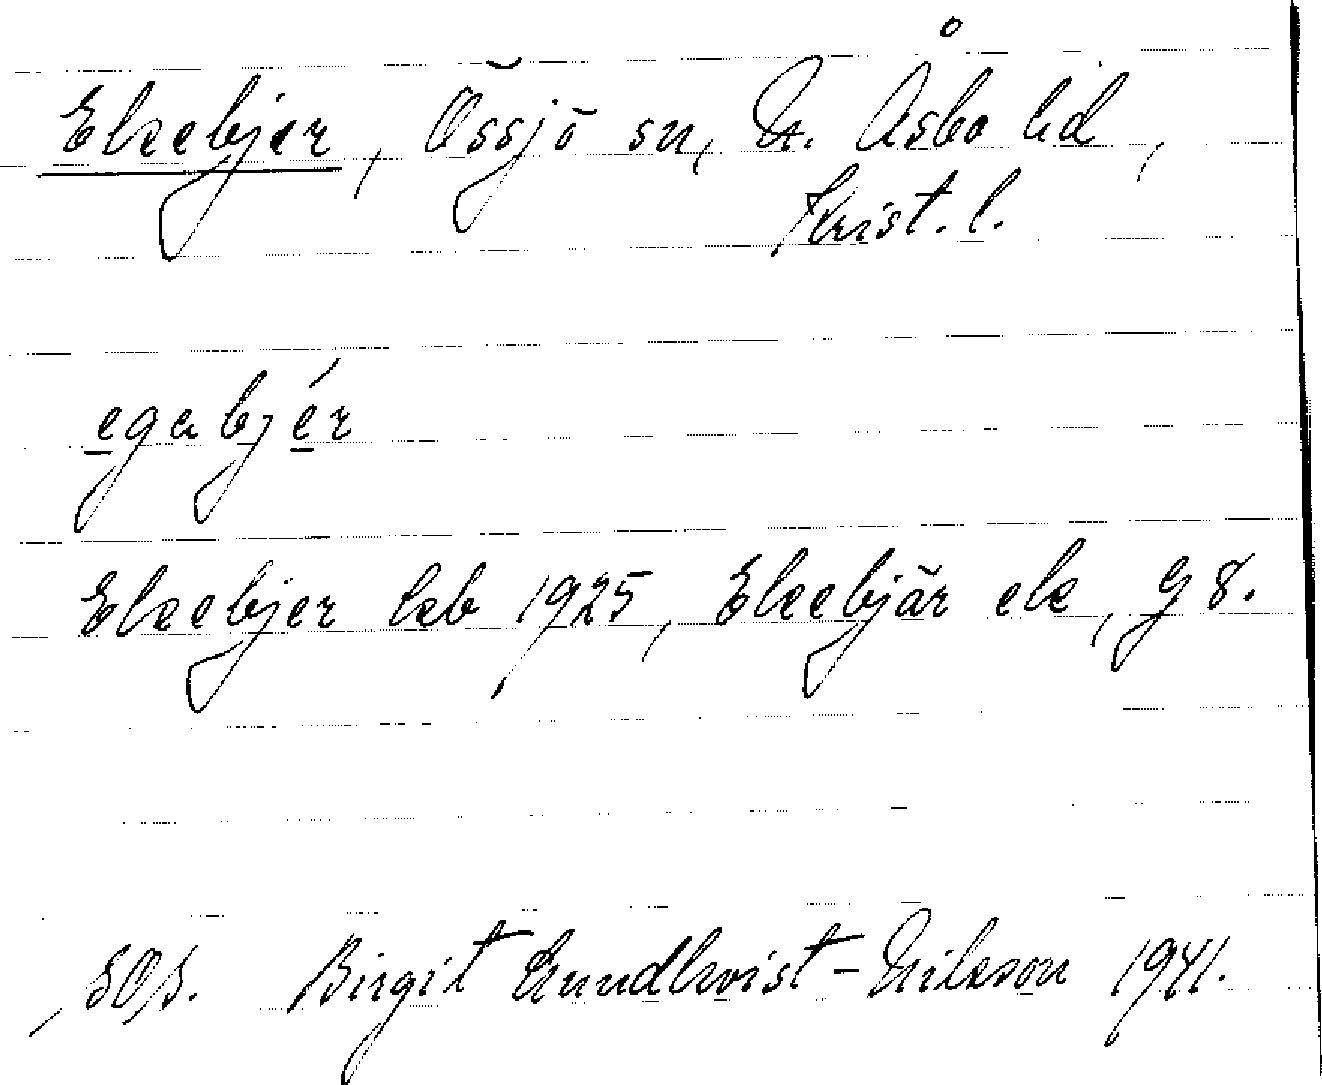 Ekebjer, Össjö sn, N. Åsbo hd,
Krist. l.
egabjér
Ekebjer leb 1925, Ekebjär ek, g 8.
SOS. Birgit Sundkvist-Nilsson 1941.